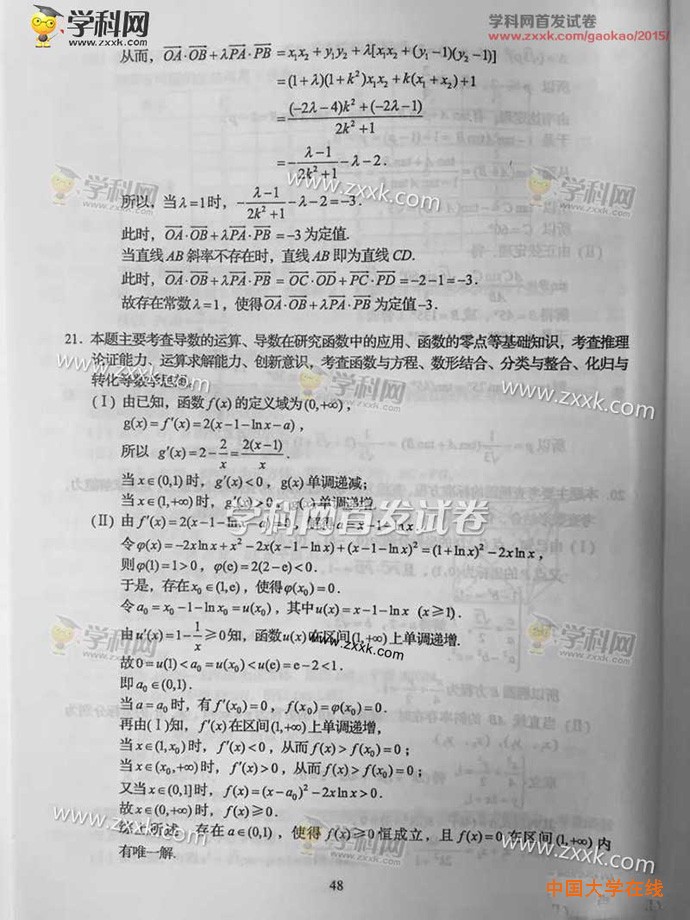 学科网
www.zxxk.com
学科网首发试卷
www.zxxk.com/gaokao/2015/
从而, OA·OB+λPA·PB=x₁x₂+y₁y₂+λ[x₁x₂+(y₁-1)(y₂-1)]
=(1+λ)(1+k²)x₁x₂+k(x₁+x₂)+1
=((-2λ-4)k²+(-2λ-1))/(2k²+1)
=-(λ-1)/(2k²+1)-λ-2.
所以, 当λ=1时, -(λ-1)/(2k²+1)-λ-2=-3.
此时, OA·OB+λPA·PB=-3为定值.
当直线AB斜率不存在时, 直线AB即为直线CD.
此时, OA·OB+λPA·PB=OC·OD+PC·PD=-2-1=-3.
故存在常数λ=1, 使得OA·OB+λPA·PB为定值-3.
21. 本题主要考查导数的运算、导数在研究函数中的应用、函数的零点等基础知识, 考查推理
论证能力、运算求解能力、创新意识, 考查函数与方程、数形结合、分类与整合、化归与
转化等数学思想.
(Ⅰ) 由已知, 函数f(x)的定义域为(0,+∞),
g(x)=f′(x)=2(x-1-lnx-a),
所以 g′(x)=2-2/x=2(x-1)/x.
当x∈(0,1)时, g′(x)<0, g(x)单调递减;
当x∈(1,+∞)时, g′(x)>0, g(x)单调递增.
(Ⅱ) 由f′(x)=2(x-1-lnx-a)=0, 解得a=x-1-lnx.
令φ(x)=-2xlnx+x²-2x(x-1-lnx)+(x-1-lnx)²=(1+lnx)²-2xlnx,
则φ(1)=1>0, φ(e)=2(2-e)<0.
于是, 存在x₀∈(1,e), 使得φ(x₀)=0.
令a₀=x₀-1-lnx₀=u(x₀), 其中u(x)=x-1-lnx (x≥1).
由u′(x)=1-1/x≥0知, 函数u(x)在区间(1,+∞)上单调递增.
故0=u(1)<a₀=u(x₀)<u(e)=e-2<1.
即a₀∈(0,1).
当a=a₀时, 有f′(x₀)=0, f(x₀)=φ(x₀)=0.
再由(Ⅰ)知, f′(x)在区间(1,+∞)上单调递增,
当x∈(1,x₀)时, f′(x)<0, 从而f(x)>f(x₀)=0;
当x∈(x₀,+∞)时, f′(x)>0, 从而f(x)>f(x₀)=0;
又当x∈(0,1]时, f(x)=(x-a₀)²-2xlnx>0.
故x∈(0,+∞)时, f(x)≥0.
综上所述, 存在a∈(0,1), 使得f(x)≥0恒成立, 且f(x)=0在区间(1,+∞)内
有唯一解.
48
中国大学在线